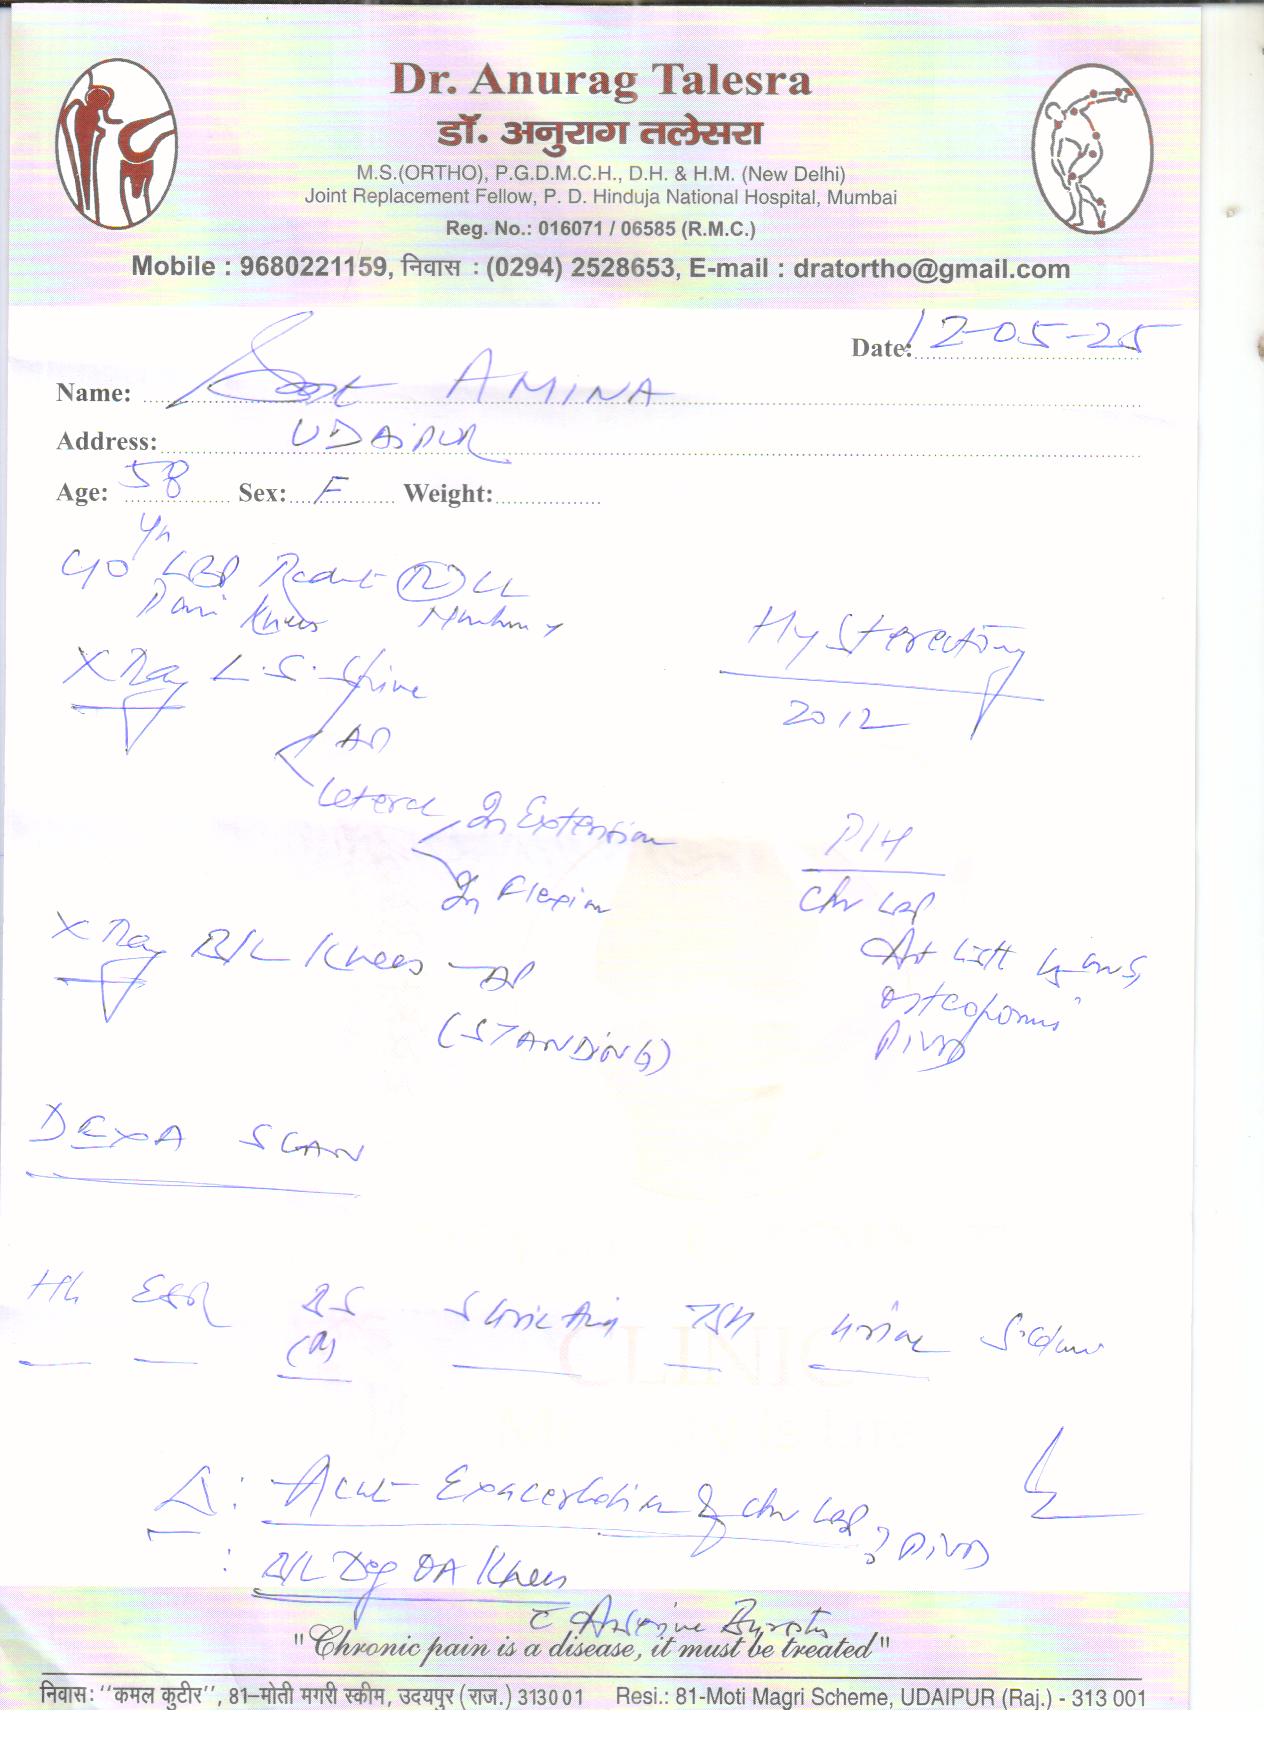 Dr. Anurag Talesra
डॉ. अनुराग तलेसरा
M.S.(ORTHO), P.G.D.M.C.H., D.H. & H.M. (New Delhi)
Joint Replacement Fellow, P. D. Hinduja National Hospital, Mumbai
Reg. No.: 016071 / 06585 (R.M.C.)
Mobile : 9680221159, निवास : (0294) 2528653, E-mail : dratortho@gmail.com
Date: 12-05-25
Name: AMINA
Address: UDAIPUR
Age: 58 Sex: F Weight:
Yr
C/O LBP (R) LL
Pain Knees
Hysterectomy
2012
X Ray L.S. Spine
AP
Lateral In Extension
In Flexion
P/H
Chr LBP
osteoporosis
PIVD
X Ray B/L Knees - AP
(STANDING)
DEXA SCAN
Hb ESR BS S Uric Acid TSH Urine
(R)
Δ: Acute Exacerbation of Chr LBP ? PIVD
: B/L Deg OA Knees
"Chronic pain is a disease, it must be treated"
निवास: "कमल कुटीर", 81-मोती मगरी स्कीम, उदयपुर (राज.) 313001 Resi.: 81-Moti Magri Scheme, UDAIPUR (Raj.) - 313 001